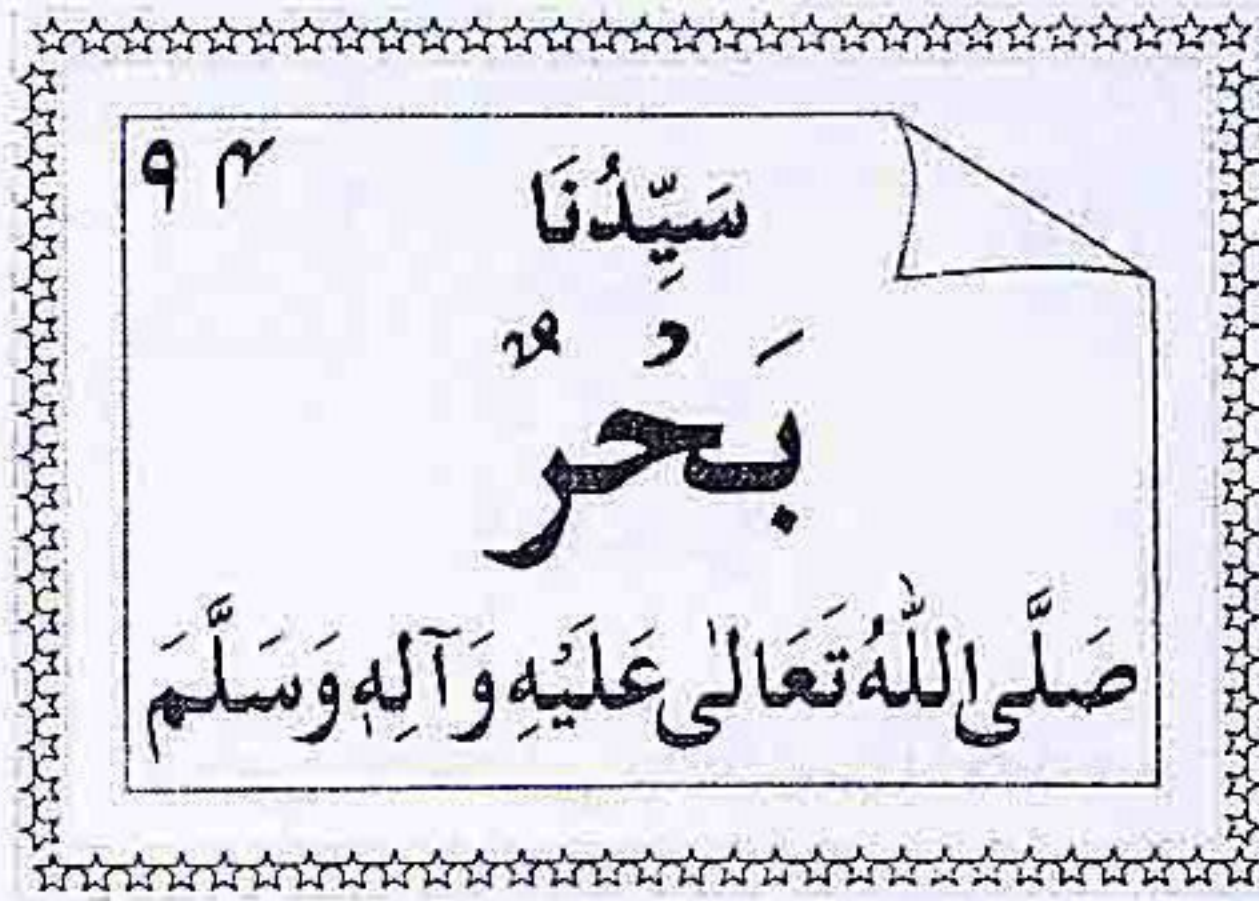 ۹۴
سَيِّدُنَا
بَحْرٌ
صَلَّى اللّٰهُ تَعَالٰى عَلَيْهِ وَآلِهٖ وَسَلَّمَ